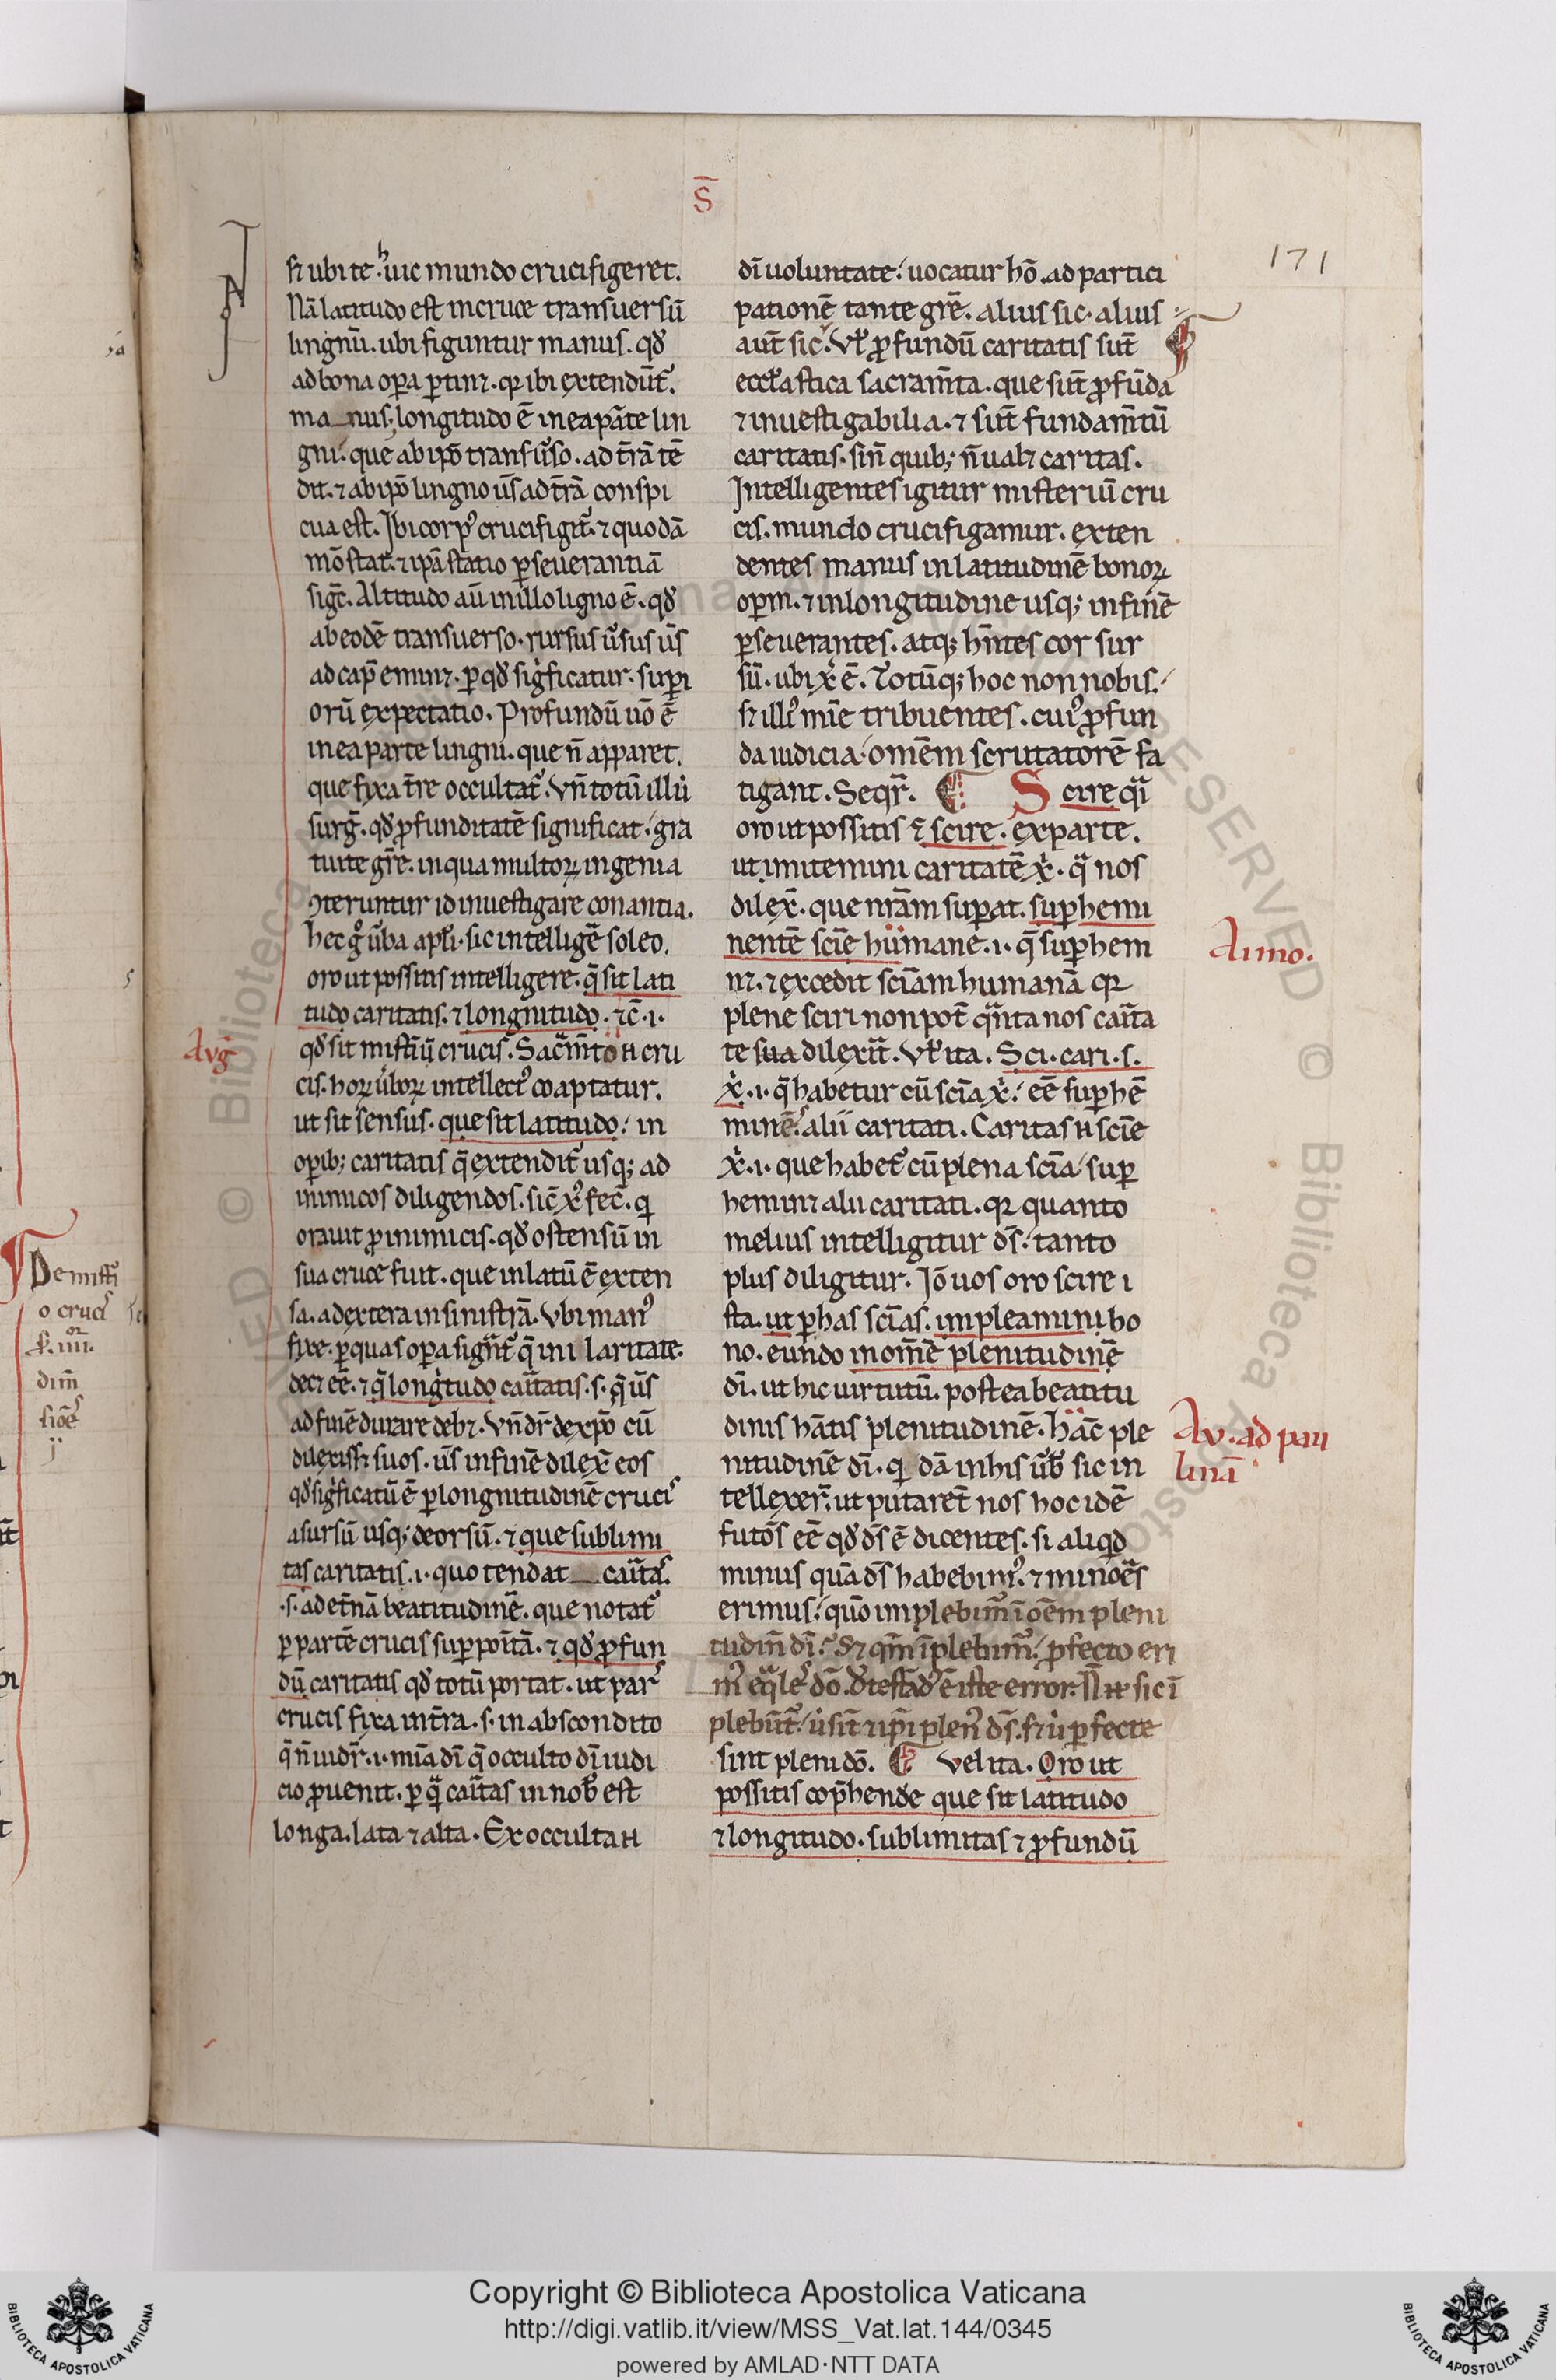 S̄
171
sꝫ ubi te huic mundo crucifigeret.
Nā latitudo est in cruce transuersū
lingnū. ubi figuntur manus. qđ
ad bona oꝑa ꝑtinꝫ. qꝛ ibi extendūt᷑
manus. longitudo ē in ea ꝑāte lin
gni. que ab ip̄o transu͛so. ad t̄rā tē
dit. ⁊ ab ip̄o lingno us̄ ad t̄rā conspi
cua est. Ibi corpꝰ crucifigit᷑. ⁊ quodā
mō stat. ⁊ ip̄a statio ꝑseuerantiā
sigt̄. Altitudo aū in illo ligno ē. qđ
ab eodē transuerso. rursus u͛sus us̄
ad cap̄ eminꝫ. ꝑ qđ significatur. suꝑi
orū expectatio. Profundū uō ē
in ea parte lingni. que n̄ apparet.
que fixa t̄re occultat᷑. Vn̄ totū illud
surḡ. qđ ꝓfunditatē significat. gra
tuite gr̄e. in qua multoꝝ ingenia
ꝯteruntur id inuestigare conantia.
hec gͦ u͛ba apl̄i. sic intelligē soleo.
oro ut possitis intelligere. q̄ sit lati
tudo caritatis. ⁊ longnitudo. ⁊c̄. i.
Avḡ
qđ sit mist͛iū crucis. Sac̄m̄to n̄ cru
cis. hoꝝ u͛boꝝ intellectꝰ coaptatur.
ut sit sensus. que sit latitudo. in
oꝑibꝫ caritatis q̄ extendit᷑ usqꝫ ad
inimicos diligendos. sic̄ xp̄c fec̄. qͥ
orauit ꝓ inimicis. qđ ostensū in
sua cruce fuit. que in latū ē exten
sa. a dextera in sinistrā. Vbi manꝰ
fixe. ꝑ quas oꝑa signāt᷑ q̄ in i laritate
decꝫ eē. ⁊ q̄ longitudo caͥtatis. s. q̄ us̄
ad finē durare debꝫ. Vn̄ dr̄ de xp̄o cū
dilexissꝫ suos. us̄ in finē dilex̄ eos
qđ sigͥficatū ē ꝑ longnitudinē crucis
a sursū usqꝫ deorsū. ⁊ que sublimi
tas caritatis. i. quo tendat caͥtas.
.s. ad et͛nā beatitudinē. que notat᷑
ꝑ partē crucis suꝑpoītā. ⁊ qđ ꝓfun
dū caritatis qđ totū portat. ut pars
crucis fixa in t̄ra. s. in abscondito
q̄ n̄ uidr̄. i. mīa dī q̄ occulto dī iudi
cio ꝓuenit. ꝑ qͣ caͥtas in nob̄ est
longa. lata ⁊ alta. Ex occulta n̄
dī uoluntate. uocatur hō. ad partici
pationē tante gr̄e. alius sic. alius
aut̄ sic. Vl̓ ꝓfundū caritatis sūt
eccl̓astica sacram̄ta. que sūt ꝓfūda
⁊ inuestigabilia. ⁊ sūt fundam̄tū
caritatis. sin̄ quibꝫ n̄ ualꝫ caritas.
Intelligentes igitur misteriū cru
cis. mundo crucifigamur. exten
dentes manus in latitudinē bonoꝝ
oꝑm. ⁊ in longitudine usqꝫ in finē
ꝑseuerantes. atqꝫ hn̄tes cor sur
sū. ubi xp̄c ē. Totūqꝫ hoc non nobis.
sꝫ illiꝰ mīe tribuentes. cuiꝰ ꝓfun
da iudicia. omēm scrutatorē fa
tigant. Seqr̄. Scire qͣ
oro ut possitis ⁊ scire. ex parte.
ut imitemini caritatē x͛. qͣ nos
dilex̄. que nr̄am suꝑat. suꝑhemi
nentē scīe humane. i. q̄ suꝑhem
Aimo.
nꝫ. ⁊ excedit scīam humanā qꝛ
plene sciri non pot̄ qͣnta nos caͥta
te sua dilexīt. Vl̓ ita. Sci. cari. s.
x͛. i. q̄ habetur cū scīa x͛. eē suꝑhē
minēs alii caritati. Caritas n̄ scīe
x͛. i. que habet᷑ cū plena scīa. suꝑ
heminꝫ alii caritati. qꝛ quanto
melius intelligitur ds̄. tanto
plus diligitur. Iō uos oro scire i
sta. ut ꝑ has scīas. impleamini bo
no. eundo in om̄ē plenitudinē
dī. ut hic uirtutū. postea beatitu
dinis hātis plenitudinē. hāc ple
Av. ad pau
linā
nitudinē dī. qͥdā in his u͛b̄ sic in
tellexer̄. ut putaret̄ nos hoc idē
futōs eē qđ ds̄ ē dicentes. si aliqͥd
minus quā ds̄ habebimꝰ. ⁊ minoēs
erimus. quō implebimꝰ ī oēm pleni
tudin̄ dī. sꝫ qm̄ īplebimꝰ. ꝓfecto eri
mꝰ eqͣles dō. detestādꝰ ē iste error. N̄ n̄ sic ī
plebūt᷑. ut sīt ⁊ ip̄i plenꝰ ds̄. sꝫ ut ꝑfecte
sint pleni dō. Vel ita. Oro ut
possitis cōp̄hende que sit latitudo
⁊ longitudo. sublimitas ⁊ ꝓfundū
De mist͛i
o crucis
dim̄
siōe
Copyright © Biblioteca Apostolica Vaticana
http://digi.vatlib.it/view/MSS_Vat.lat.144/0345
powered by AMLAD·NTT DATA
BIBLIOTECA APOSTOLICA VATICANA
BIBLIOTECA APOSTOLICA VATICANA